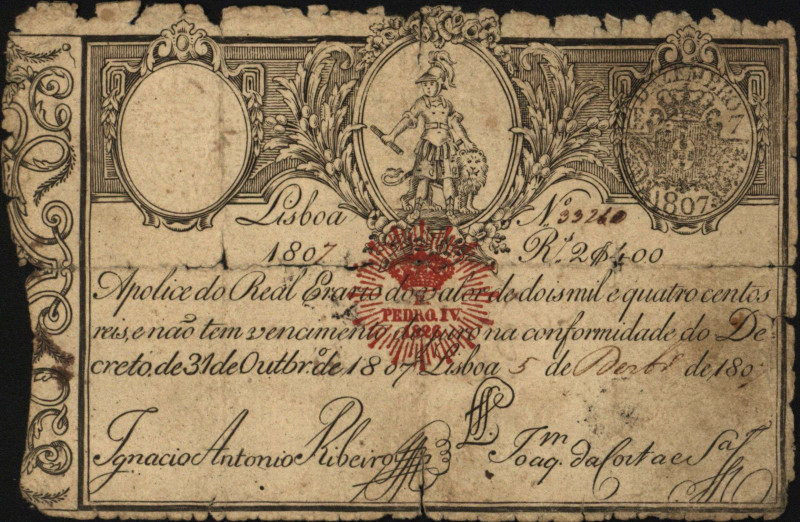 1807
Lisboa Nº 33260
1807 Rˢ 2$400
PEDRO. IV.
1826
Apolice do Real Erario do Valor de dois mil e quatro centos
reis, e não tem vencimento de juro na conformidade do De-
creto, de 31 de Outbrº de 1807 Lisboa 5 de de 180
Ignacio Antonio Ribeiro
Joaqᵐ da Costa e Sª